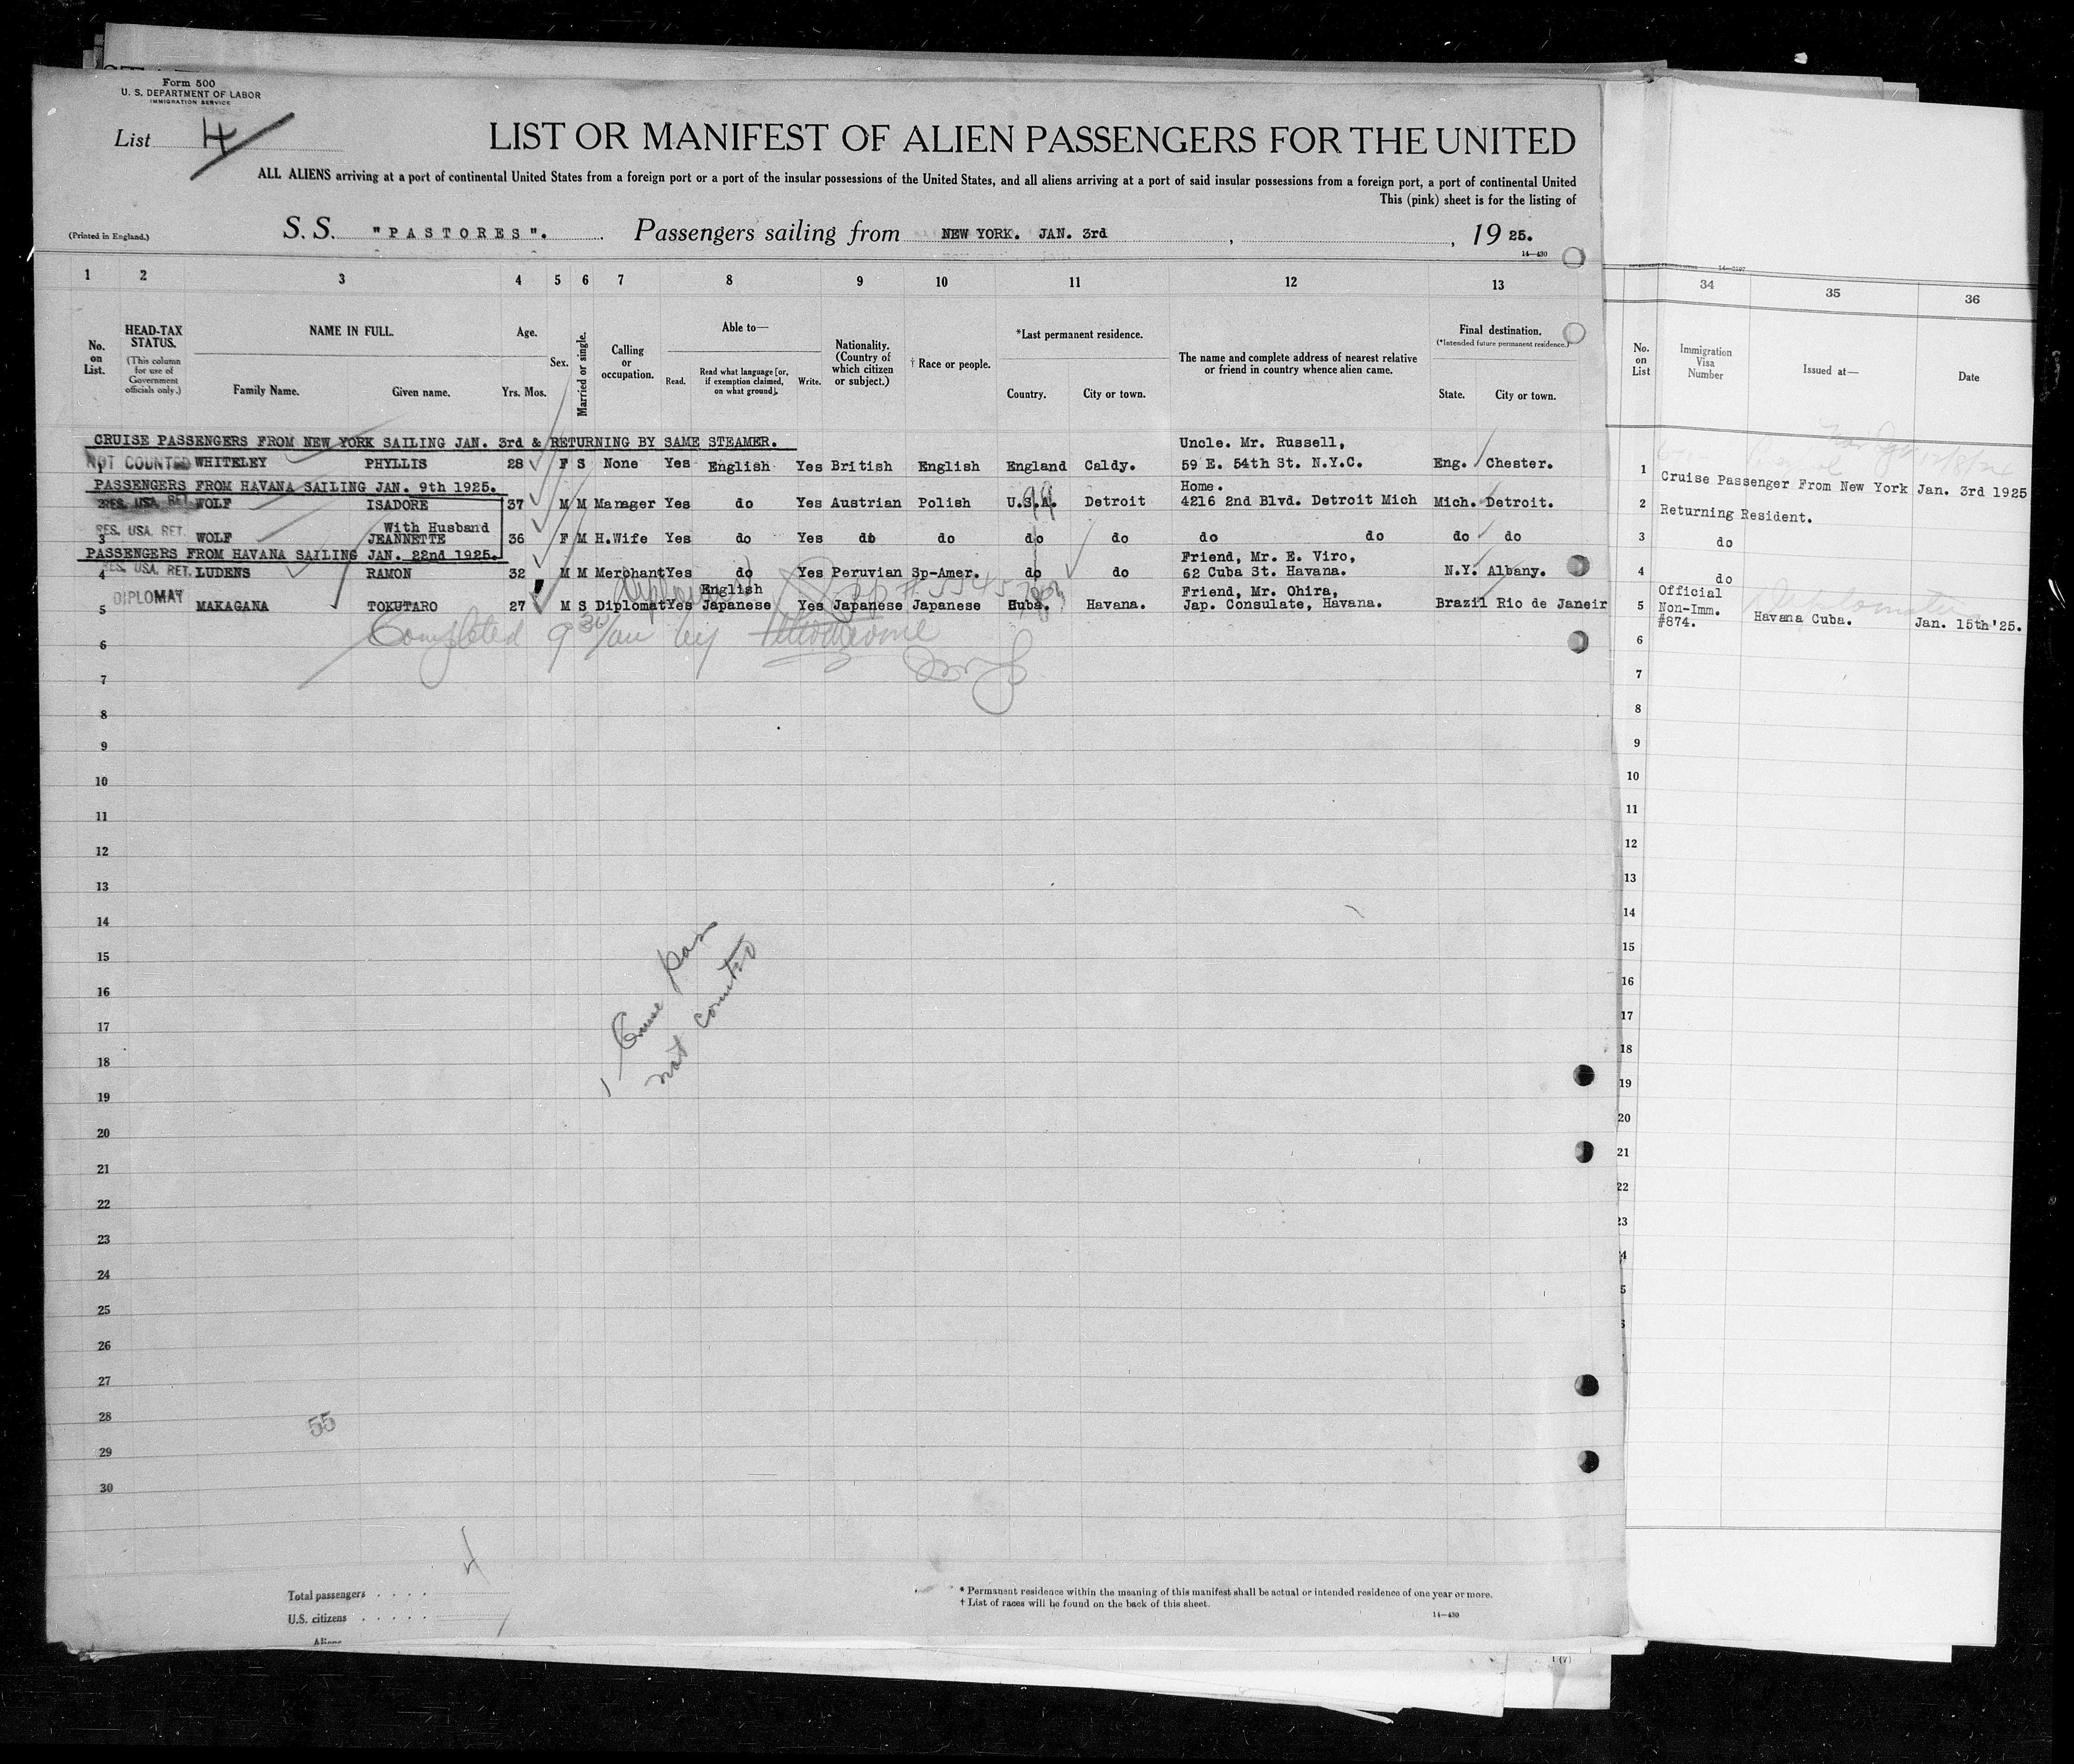 Form 500
U. S. DEPARTMENT OF LABOR
IMMIGRATION SERVICE
List 4
LIST OR MANIFEST OF ALIEN PASSENGERS FOR THE UNITED
ALL ALIENS arriving at a port of continental United States from a foreign port or a port of the insular possessions of the United States, and all aliens arriving at a port of said insular possessions from a foreign port, a port of continental United
This (pink) sheet is for the listing of
(Printed in England.)
S. S. "PASTORES". Passengers sailing from NEW YORK. JAN. 3rd , , 19 25.
14—430
1 2 3 4 5 6 7 8 9 10 11 12 13
No. on List.
HEAD-TAX STATUS.
(This column for use of Government officials only.)
NAME IN FULL.
Family Name. Given name.
Age.
Yrs. Mos.
Sex.
Married or single.
Calling or occupation.
Able to—
Read. Read what language [or, if exemption claimed, on what ground]. Write.
Nationality. (Country of which citizen or subject.)
† Race or people.
*Last permanent residence.
Country. City or town.
The name and complete address of nearest relative or friend in country whence alien came.
Final destination.
(*Intended future permanent residence.)
State. City or town.
34 35 36
No. on List
Immigration Visa Number
Issued at—
Date
CRUISE PASSENGERS FROM NEW YORK SAILING JAN. 3rd & RETURNING BY SAME STEAMER.
Uncle. Mr. Russell,
1 NOT COUNTED WHITELEY PHYLLIS 28 F S None Yes English Yes British English England Caldy. 59 E. 54th St. N.Y.C. Eng. Chester.
1 Cruise Passenger From New York Jan. 3rd 1925
PASSENGERS FROM HAVANA SAILING JAN. 9th 1925.
Home.
2 RES. USA. RET. WOLF ISADORE 37 M M Manager Yes do Yes Austrian Polish U.S.A. Detroit 4216 2nd Blvd. Detroit Mich Mich. Detroit.
2 Returning Resident.
With Husband
3 RES. USA. RET. WOLF JEANNETTE 36 F M H.Wife Yes do Yes do do do do do do do do
3 do
PASSENGERS FROM HAVANA SAILING JAN. 22nd 1925.
Friend, Mr. E. Viro,
4 RES. USA. RET. LUDENS RAMON 32 M M Merchant Yes do Yes Peruvian Sp-Amer. do do 62 Cuba St. Havana. N.Y. Albany.
4 do
English
Friend, Mr. Ohira,
5 DIPLOMAT MAKAGANA TOKUTARO 27 M S Diplomat Yes Japanese Yes Japanese Japanese Cuba. Havana. Jap. Consulate, Havana. Brazil Rio de Janeir
5 Official Non-Imm. #874. Havana Cuba. Jan. 15th '25.
Completed 9 30/am by
6 6
7 7
8 8
9 9
10 10
11 11
12 12
13 13
14 14
15 15
16 16
17 17
18 18
19 19
20 20
21 21
22 22
23 23
24
25
26
27
28
29
30
1 Cruise pas
not counted
55
Total passengers
U.S. citizens
Aliens
* Permanent residence within the meaning of this manifest shall be actual or intended residence of one year or more.
† List of races will be found on the back of this sheet.
14—430